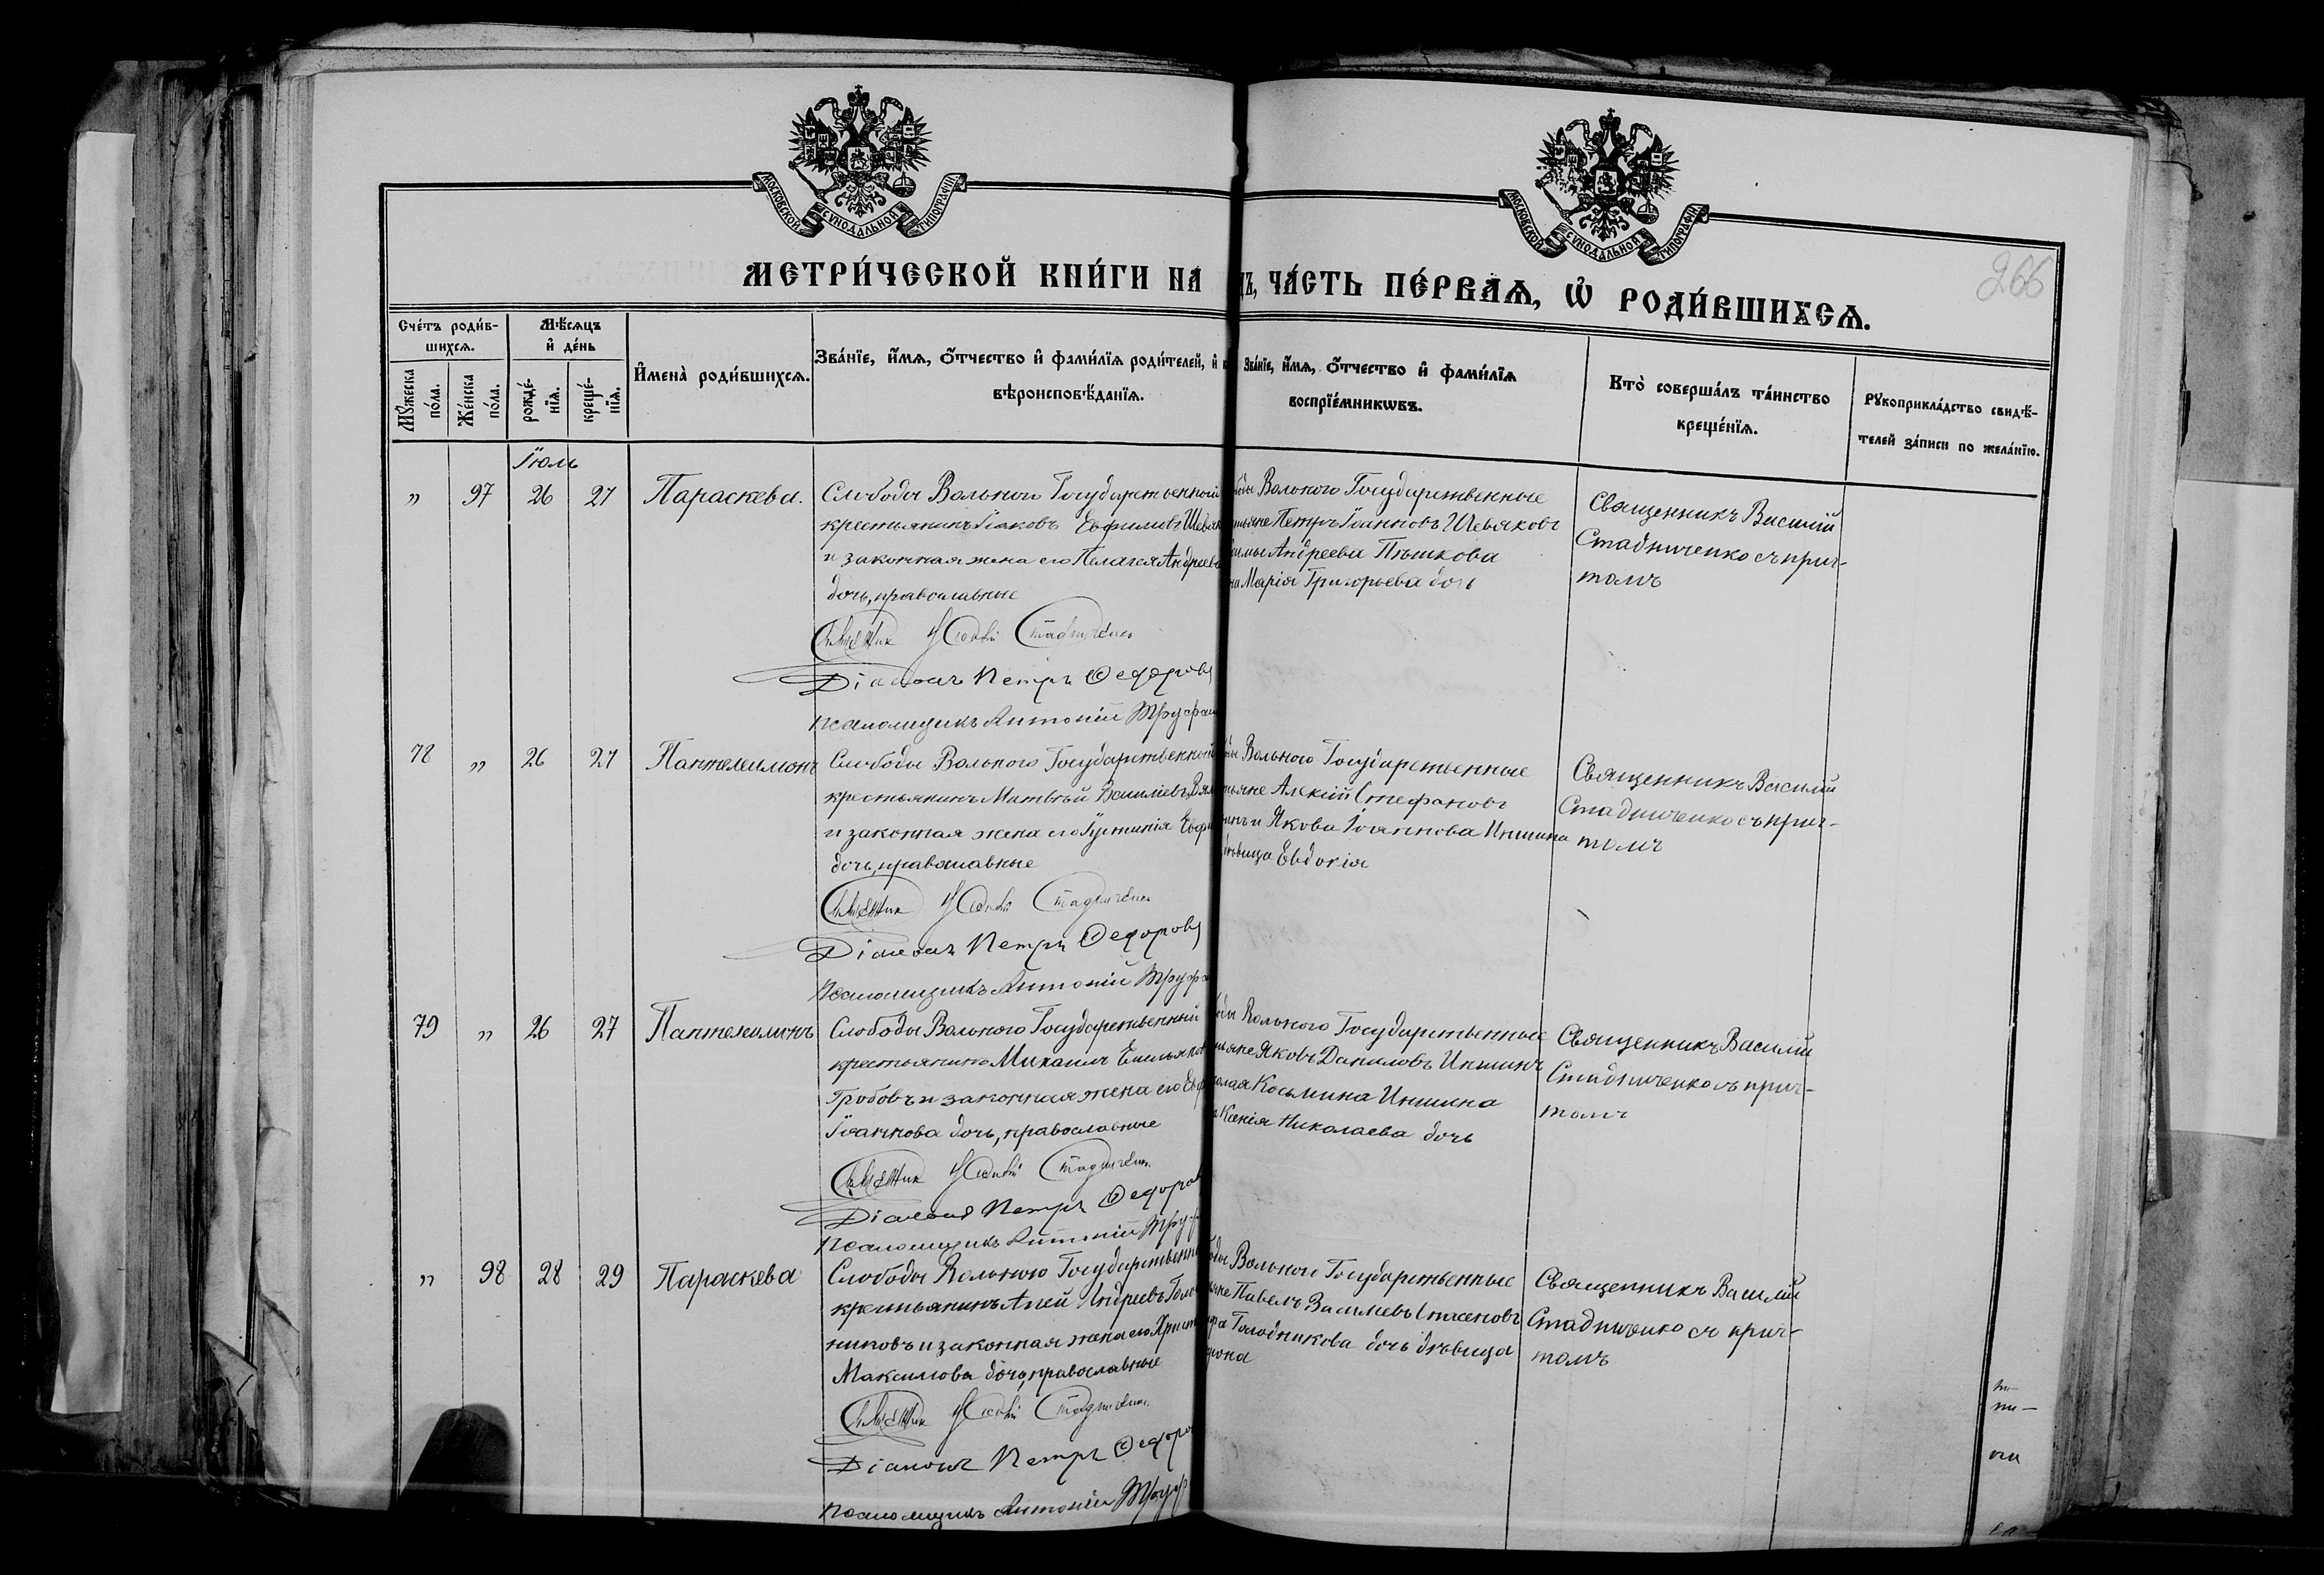 МОСКОВСКОЙ СѴНОДАЛЬНОЙ ТИПОГРАФІИ
МОСКОВСКОЙ СѴНОДАЛЬНОЙ ТИПОГРАФІИ
266
МЕТРИ́ЧЕСКОЙ КНИ́ГИ НА
ЧА́СТЬ ПЕ́РВАѦ, Ѡ҆ РОДИ́ВШИХСѦ.
Сче́тъ роди́в-
шихсѧ.
Мѣ́сѧцъ
и҆ де́нь
Мꙋ́жеска
по́ла.
Же́нска
по́ла.
рожде́-
нїѧ.
креще́-
нїѧ.
И҆мена̀ роди́вшихсѧ.
Зва́нїе, и҆́мѧ, ѻ҆́тчество и҆ фами́лїѧ роди́телей, и҆
вѣроисповѣ́данїѧ.
Зва́нїе, и҆́мѧ, ѻ҆́тчество и҆ фами́лїѧ
воспрїе́мникѡвъ.
Кто̀ соверша́лъ та́инство
креще́нїѧ.
Рꙋкоприкла́дство свидѣ́-
телей за́писи по жела́нїю.
Іюль
" 97 26 27 Параскева.
Слободы Вольного Государственный
крестьянинъ Іаковъ Евфимовъ
и законная жена его Пелагея Андреева
дочь, православные
Священник Стадниченко
Діаконъ Петръ Федоровъ
Псаломщикъ Антоній
Вольного Государственные
Петръ Іоанновъ Шевяковъ
Андреева Пѣшкова
Марія Григорьева дочь
Священникъ Василій
Стадниченко съ прич-
томъ
78 " 26 27 Пантелеимонъ
Слободы Вольного Государственный
крестьянинъ Матвѣй Василіевъ
и законная жена его Іустинія
дочь, православные
Священник Стадниченко
Діаконъ Петръ Федоровъ
Псаломщикъ Антоній
Вольного Государственные
Алексій Стефановъ
и Якова Іоаннова Иншина
Евдокія
Священникъ Василій
Стадниченко съ прич-
томъ
79 " 26 27 Пантелеимонъ
Слободы Вольного Государственный
крестьянинъ Михаилъ Емельяновъ
Гробовъ и законная жена его
Іоаннова дочь, православные
Священник Стадниченко
Діаконъ Петръ
Псаломщикъ Антоній
Вольного Государственные
Яковъ Даниловъ Иншинъ
Косьмина Иншина
Ксенія Николаева дочь
Священникъ Василій
Стадниченко съ прич-
томъ
" 98 28 29 Параскева
Слободы Вольного
крестьянинъ Андреевъ
никовъ и законная жена его
Максимова дочь, православные
Священник Стадниченко
Діаконъ Петръ
Псаломщикъ Антоній
Вольного Государственные
Павелъ Василіевъ
Голодникова дочь дѣвица
Священникъ Василій
Стадниченко съ прич-
томъ